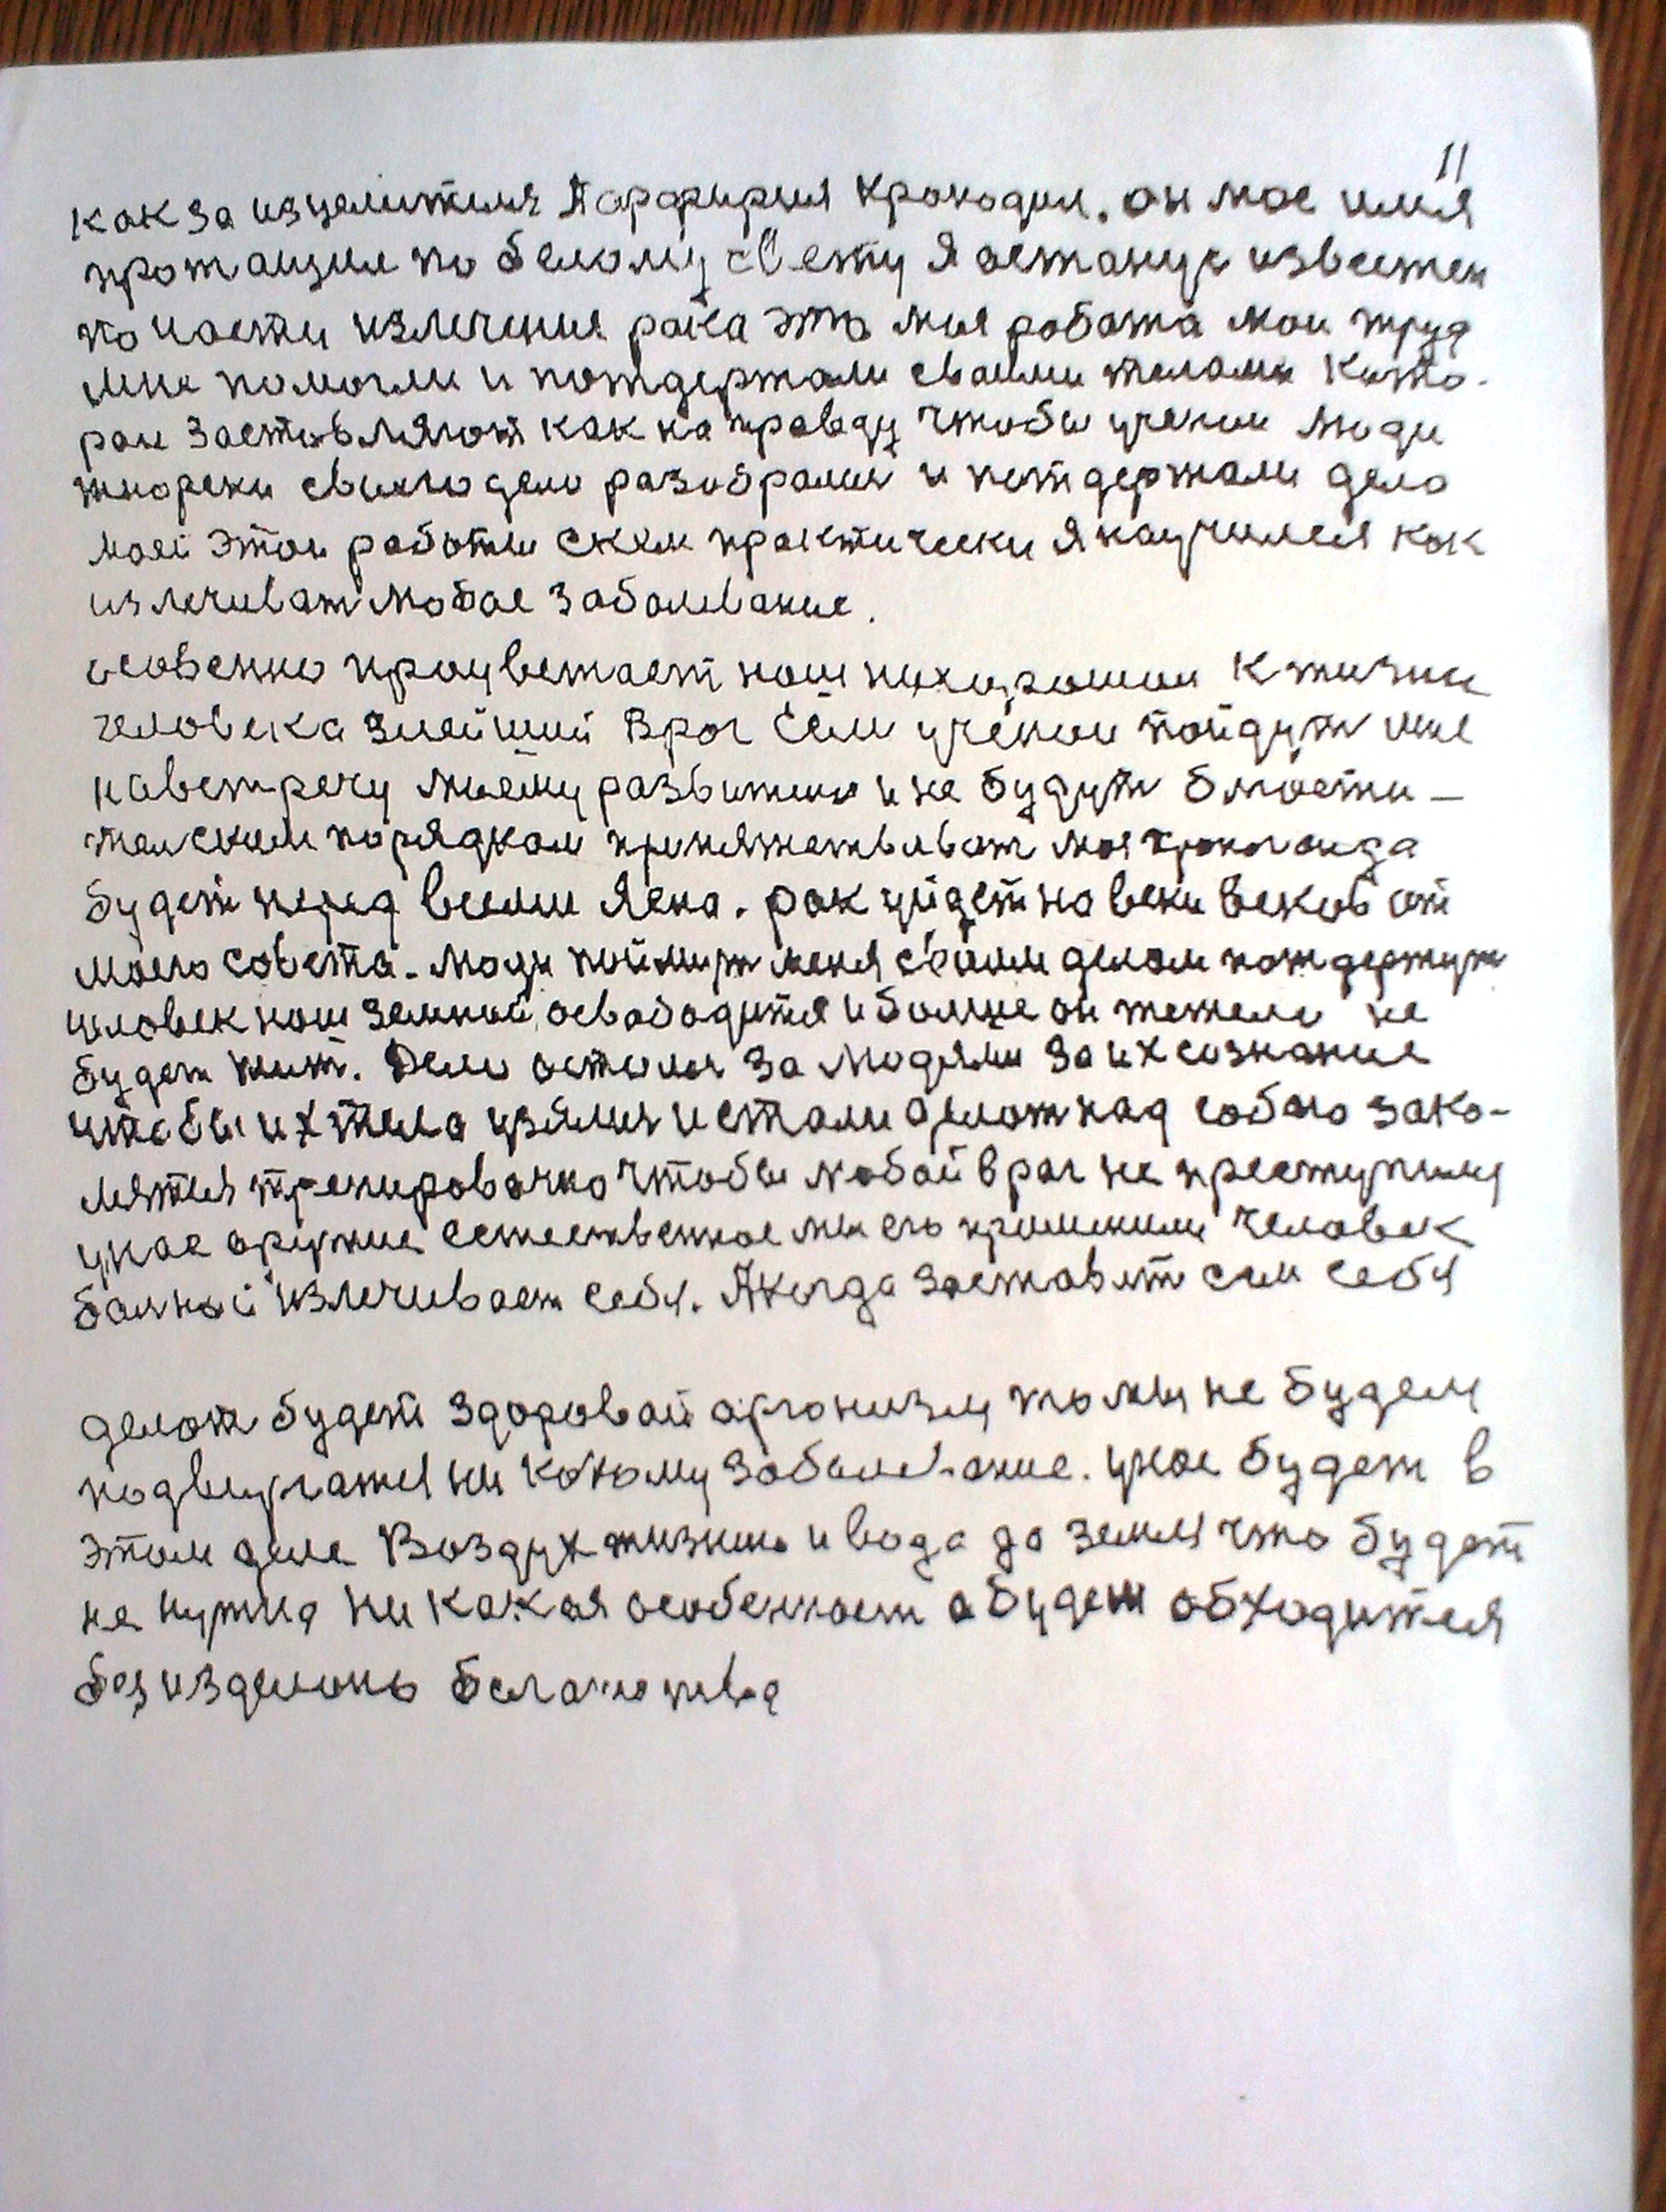 11
как за изцелителя Парфирия Крокодил. он мое имя
протащил по белому свету Я астанус извеетен
по части излечения рака это мня робота мои труд
мне помогли и потдержали сваими телами Кото-
рои заетовляют как на правду чтобы учении люди
сваиго дело разобралис и потдержали дело
моеи этои работы скем практически я научилея как
излечиват любое заболевание.
особенно процветает наш нихорошии к тизни
человека злейший враг Если учёнои пойдут мне
навстречу моему развитию и не будут блюсти-
телским порядком препятствоват моя пропоганда
будет перед всеми Ясна. рак уйдет на веки веков от
моего совета. люди поймут меня своим делом потдержут
человек наш земной освободится и болше он тежело не
будет жит. Дело осталос за людями за их сознание
чтобы их тела взялис и стали делат над собою зака-
лятся тренировачно чтобы любой враг не преступил у
нас аружие естественное мы его применим человек
балной излечивает себя. А когда заставит сам себя
делат будет здоровой арганизм то мы не будем
подвергатся ни какому заболевание. у нас будет в
этом деле Воздух жизни и вода да земля что будет
не нужна ни какая особенност а будеш обходится
без изделино богатства